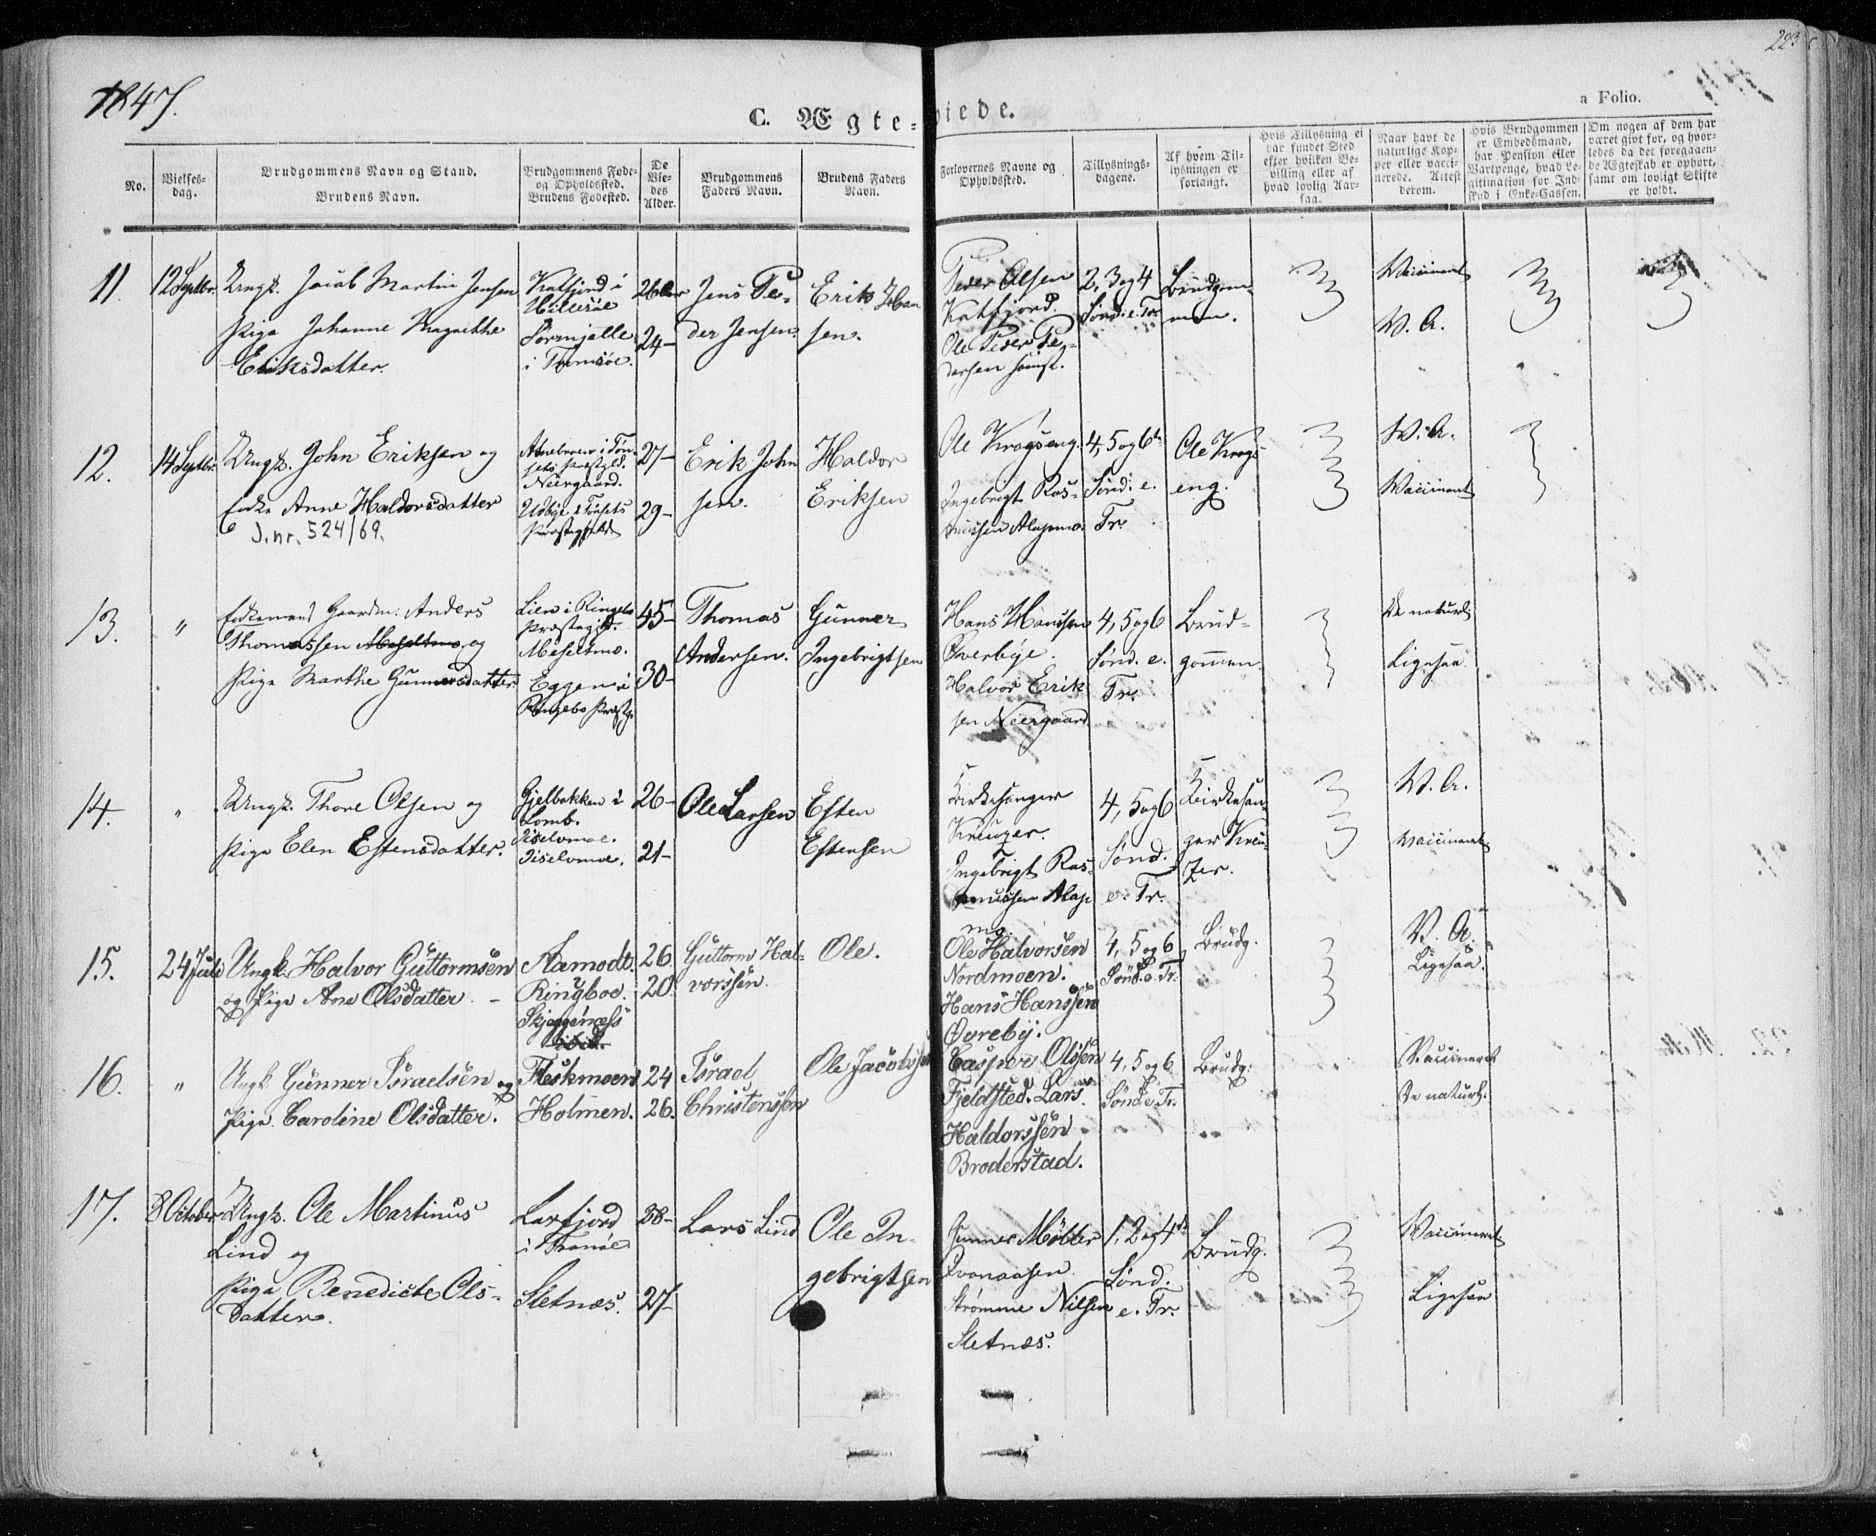 1847.
223
C. Ægte-
viede.
a Folio.
No.
Vielses-
dag.
Brudgommens Navn og Stand.
Brudens Navn.
Brudgommens Føde-
og Opholdssted.
Brudens Fødested.
De
Vie-
des
Alder.
Brudgommens
Faders Navn.
Brudens Faders
Navn.
Forlovernes Navne og
Opholdssted.
Tillysnings-
dagene.
Af hvem Til-
lysningen er
forlangt.
Hvis Tillysning ei
har fundet Sted
efter hvilken Be-
villing eller af
hvad lovlig Aar-
saa.
Naar havt de
naturlige Kop-
per eller vacci-
nerede. Attest
derom.
Hvis Brudgommen
er Embedsmand,
har Pension eller
Vartpenge, hvad Le-
gitimation for Ind-
skud i Enke-Cassen.
Om nogen af dem har
været givt før, og hvor-
ledes da det foregaaen-
de Ægteskab er ophørt,
samt om lovligt Skifte
er holdt.
11.
12 Septbr.
Ungk. Jacob Martin Jensen
Pige Johanne Magrethe
Eriksdatter.
Katfjord i
Hillesøe
i Tromsøe.
26 Aar
24-
Jens Pe-
der Jensen.
Erik Han
sen.
Peder Olsen
Katfjord.
Ole Peder Pe-
dersen
2, 3 og 4
Sønd. e. Tr.
Brudgom-
men.
Vaccineret
V. A.
12.
14 Septbr.
Ungk. John Eriksen og
Enke Anne Haldorsdatter
J.nr. 524/69.
Neergaard.
Udbye i Tønsets
Præstegjeld
27-
29-
Erik John
sen.
Haldor
Eriksen
Ole Krogseng.
Ingebrigt Ras-
mussen Alapmo.
4, 5 og 6te
Sønd. e.
Tr.
Ole Krogs
eng.
V. A.
Vaccineret
13.
"
Enkemand Gaardm. Anders
Thomassen og
Pige Marthe Gunnersdatter.
Lien i Ringebo
Præstegjld.
Moseltmo.
Eggen i
Ringebo Præstg.
45-
30-
Thomas
Andersen.
Gunner
Ingebrigtsen
Hans Hansen
Øverbye.
Halvor Erik
sen Neergaard.
4, 5 og 6
Sønd. e.
Tr.
Brud-
gommen.
De naturl.
Ligesaa
14.
"
Ungk. Thore Olsen og
Pige Elen Estensdatter.
Gjelbakken i
Lomb.
26-
21-
Ole Larsen
Esten
Estensen
Kirkesanger
Kreuzer.
Ingebrigt Ras-
mussen Alap
mo.
4, 5 og 6
Sønd.
e. Tr.
Kirkesan-
ger Kreu
zer.
V. A.
Vaccineret
15.
24 Juli
Ungk. Halvor Guttormsen
og Pige Ane Olsdatter. -
Aamodt.
Ringboe.
Skjæggenæss
26.
20.
Guttorm Hal-
vorssen.
Ole.
Ole Halvorsen
Nordmoen.
Hans Hanssen
Øvreby.
4, 5 og 6
Sønd. e. Tr.
Brudg.
V. A.
Ligesaa.
16.
"
Ungk. Gunner Israelsen og
Pige Caroline Olsdatter.
Fleskmoen
Holmen.
24
26.
Israel
Christenssen
Ole Jacobsen
Casper Olssen
Fjeldsted. Lars
Haldorssen
Broderstad.
4, 5 og 6
Sønd. e. Tr.
Brudg.
Vaccineret
De naturl.
17.
8 October
Ungk. Ole Martinus
Lind og
Pige Benedicte Ols-
datter.
Laxfjord
i Tranøe
Sletnæs.
28-
27-
Lars Lind
Ole In-
gebrigtsen
Gunner Møller
Strømme Nilsen
Sletnæs.
1, 2 og 4de
Sønd.
e. Tr.
Brudg.
Vaccineret
Ligesaa